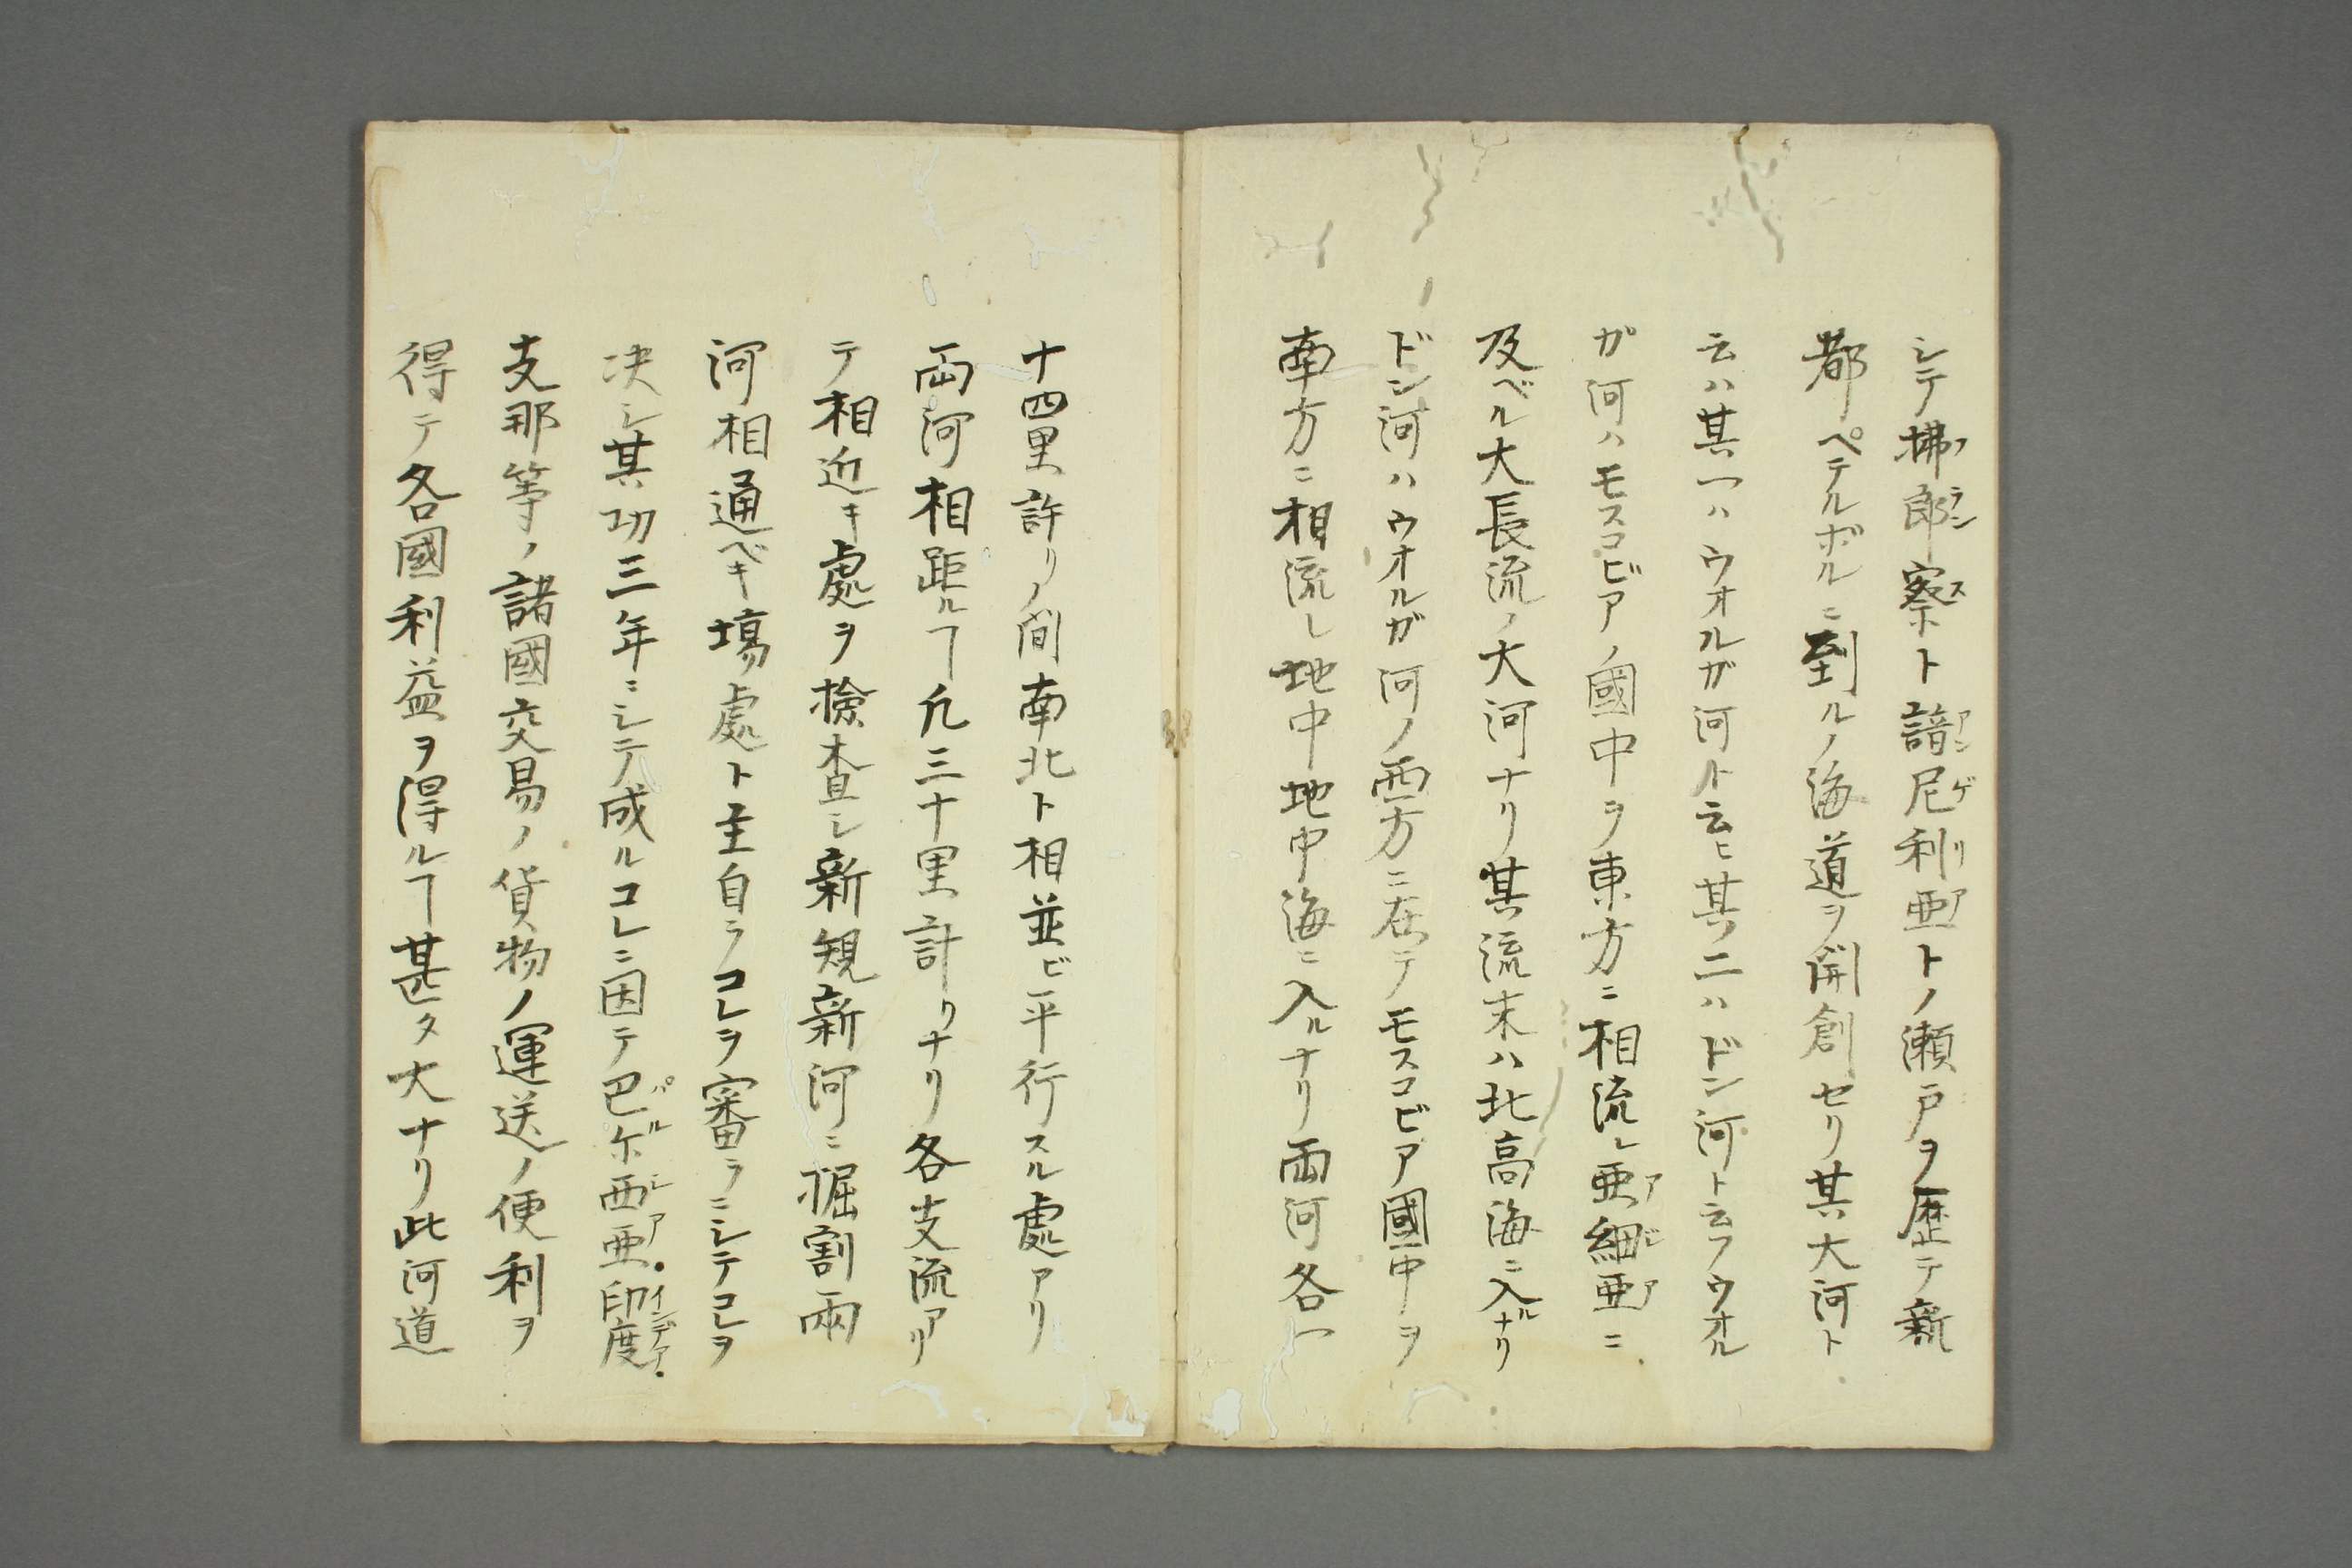 シテ拂郎察ト諳尼利亜トノ瀬戸ヲ歴テ新
都ペテルボルニ到ルノ海道ヲ開創セリ其大河ト
云ハ其一ハウオルガ河ト云ヒ其二ハドン河ト云フウオル
ガ河ハモスコビアノ國中ヲ東方ニ相流レ亜細亜ニ
及ベル大長流ノ大河ナリ其流末ハ北高海ニ入ルナリ
ドン河ハウオルガ河ノ西方ニ在テモスコビア國中ヲ
南方ニ相流レ地中地中海ニ入ルナリ両河各一
十四里許リノ間南北ト相並ビ平行スル處アリ
両河相距ルヿ凡三十里計リナリ各支流アリ
テ相近キ處ヲ撿査シ新規新河ニ掘割兩
河相通ベキ塲處ト主自ラコレヲ審ラニシテコレヲ
决シ其功三年ニシテ成ルコレニ因テ巴尓西亜印度
支那等ノ諸國交易ノ貨物ノ運送ノ便利ヲ
得テ各國利益ヲ得ルヿ甚タ大ナリ此河道